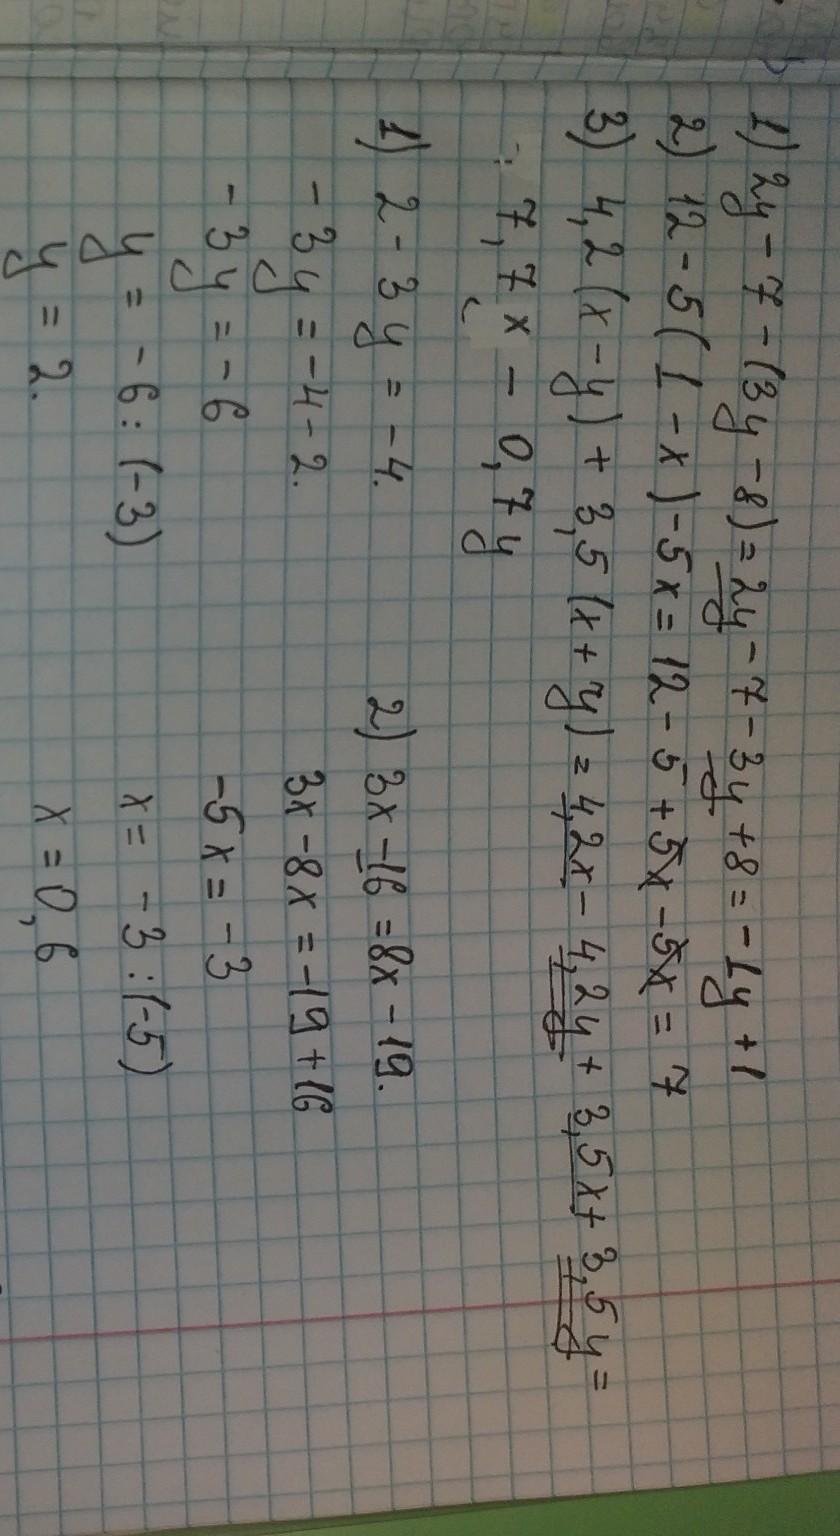 1) 2y - 7 - (3y - 8) = 2y - 7 - 3y + 8 = -1y + 1
2) 12 - 5(1 - x) - 5x = 12 - 5 + 5x - 5x = 7
3) 4,2(x - y) + 3,5(x + y) = 4,2x - 4,2y + 3,5x + 3,5y =
7,7x - 0,7y
1) 2 - 3y = -4.
-3y = -4 - 2.
-3y = -6
y = -6 : (-3)
y = 2.
2) 3x - 16 = 8x - 19.
3x - 8x = -19 + 16
-5x = -3
x = -3 : (-5)
x = 0,6